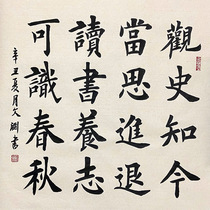 觀史知今
當思進退
讀書養志
可識春秋
辛丑夏月文湖書